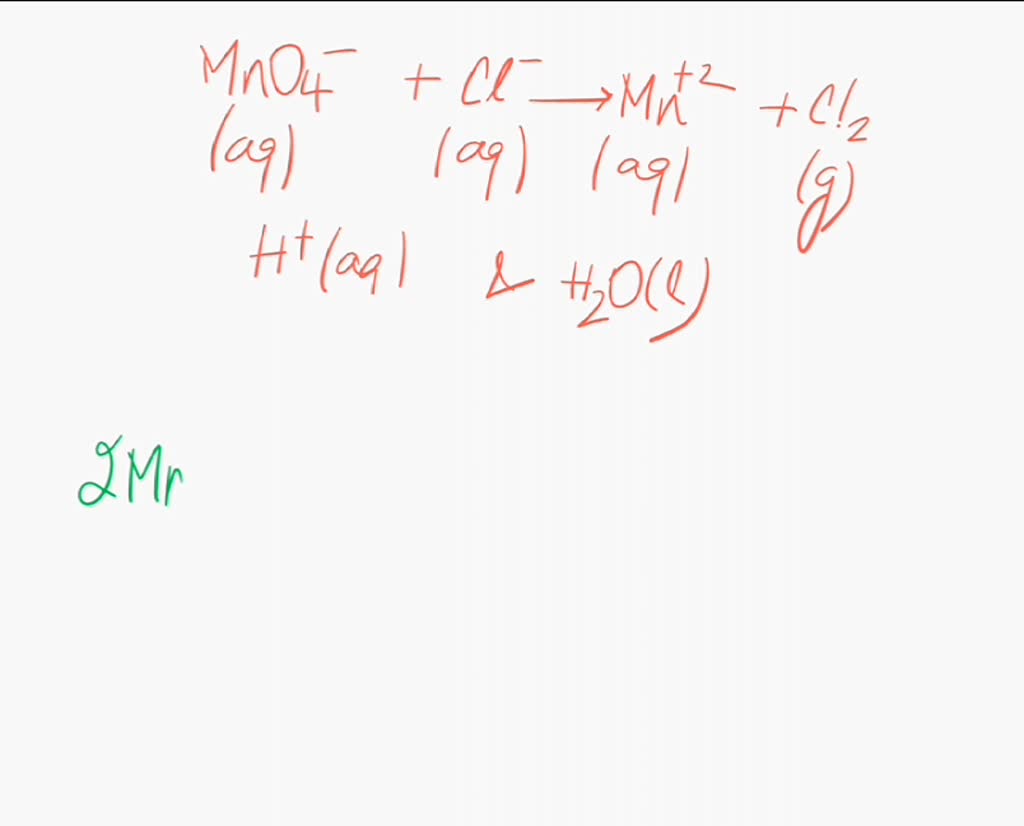 MnO₄⁻ + Cl⁻ → Mn⁺² + Cl₂
(aq) (aq) (aq) (g)
H⁺(aq) & H₂O(l)
2Mr